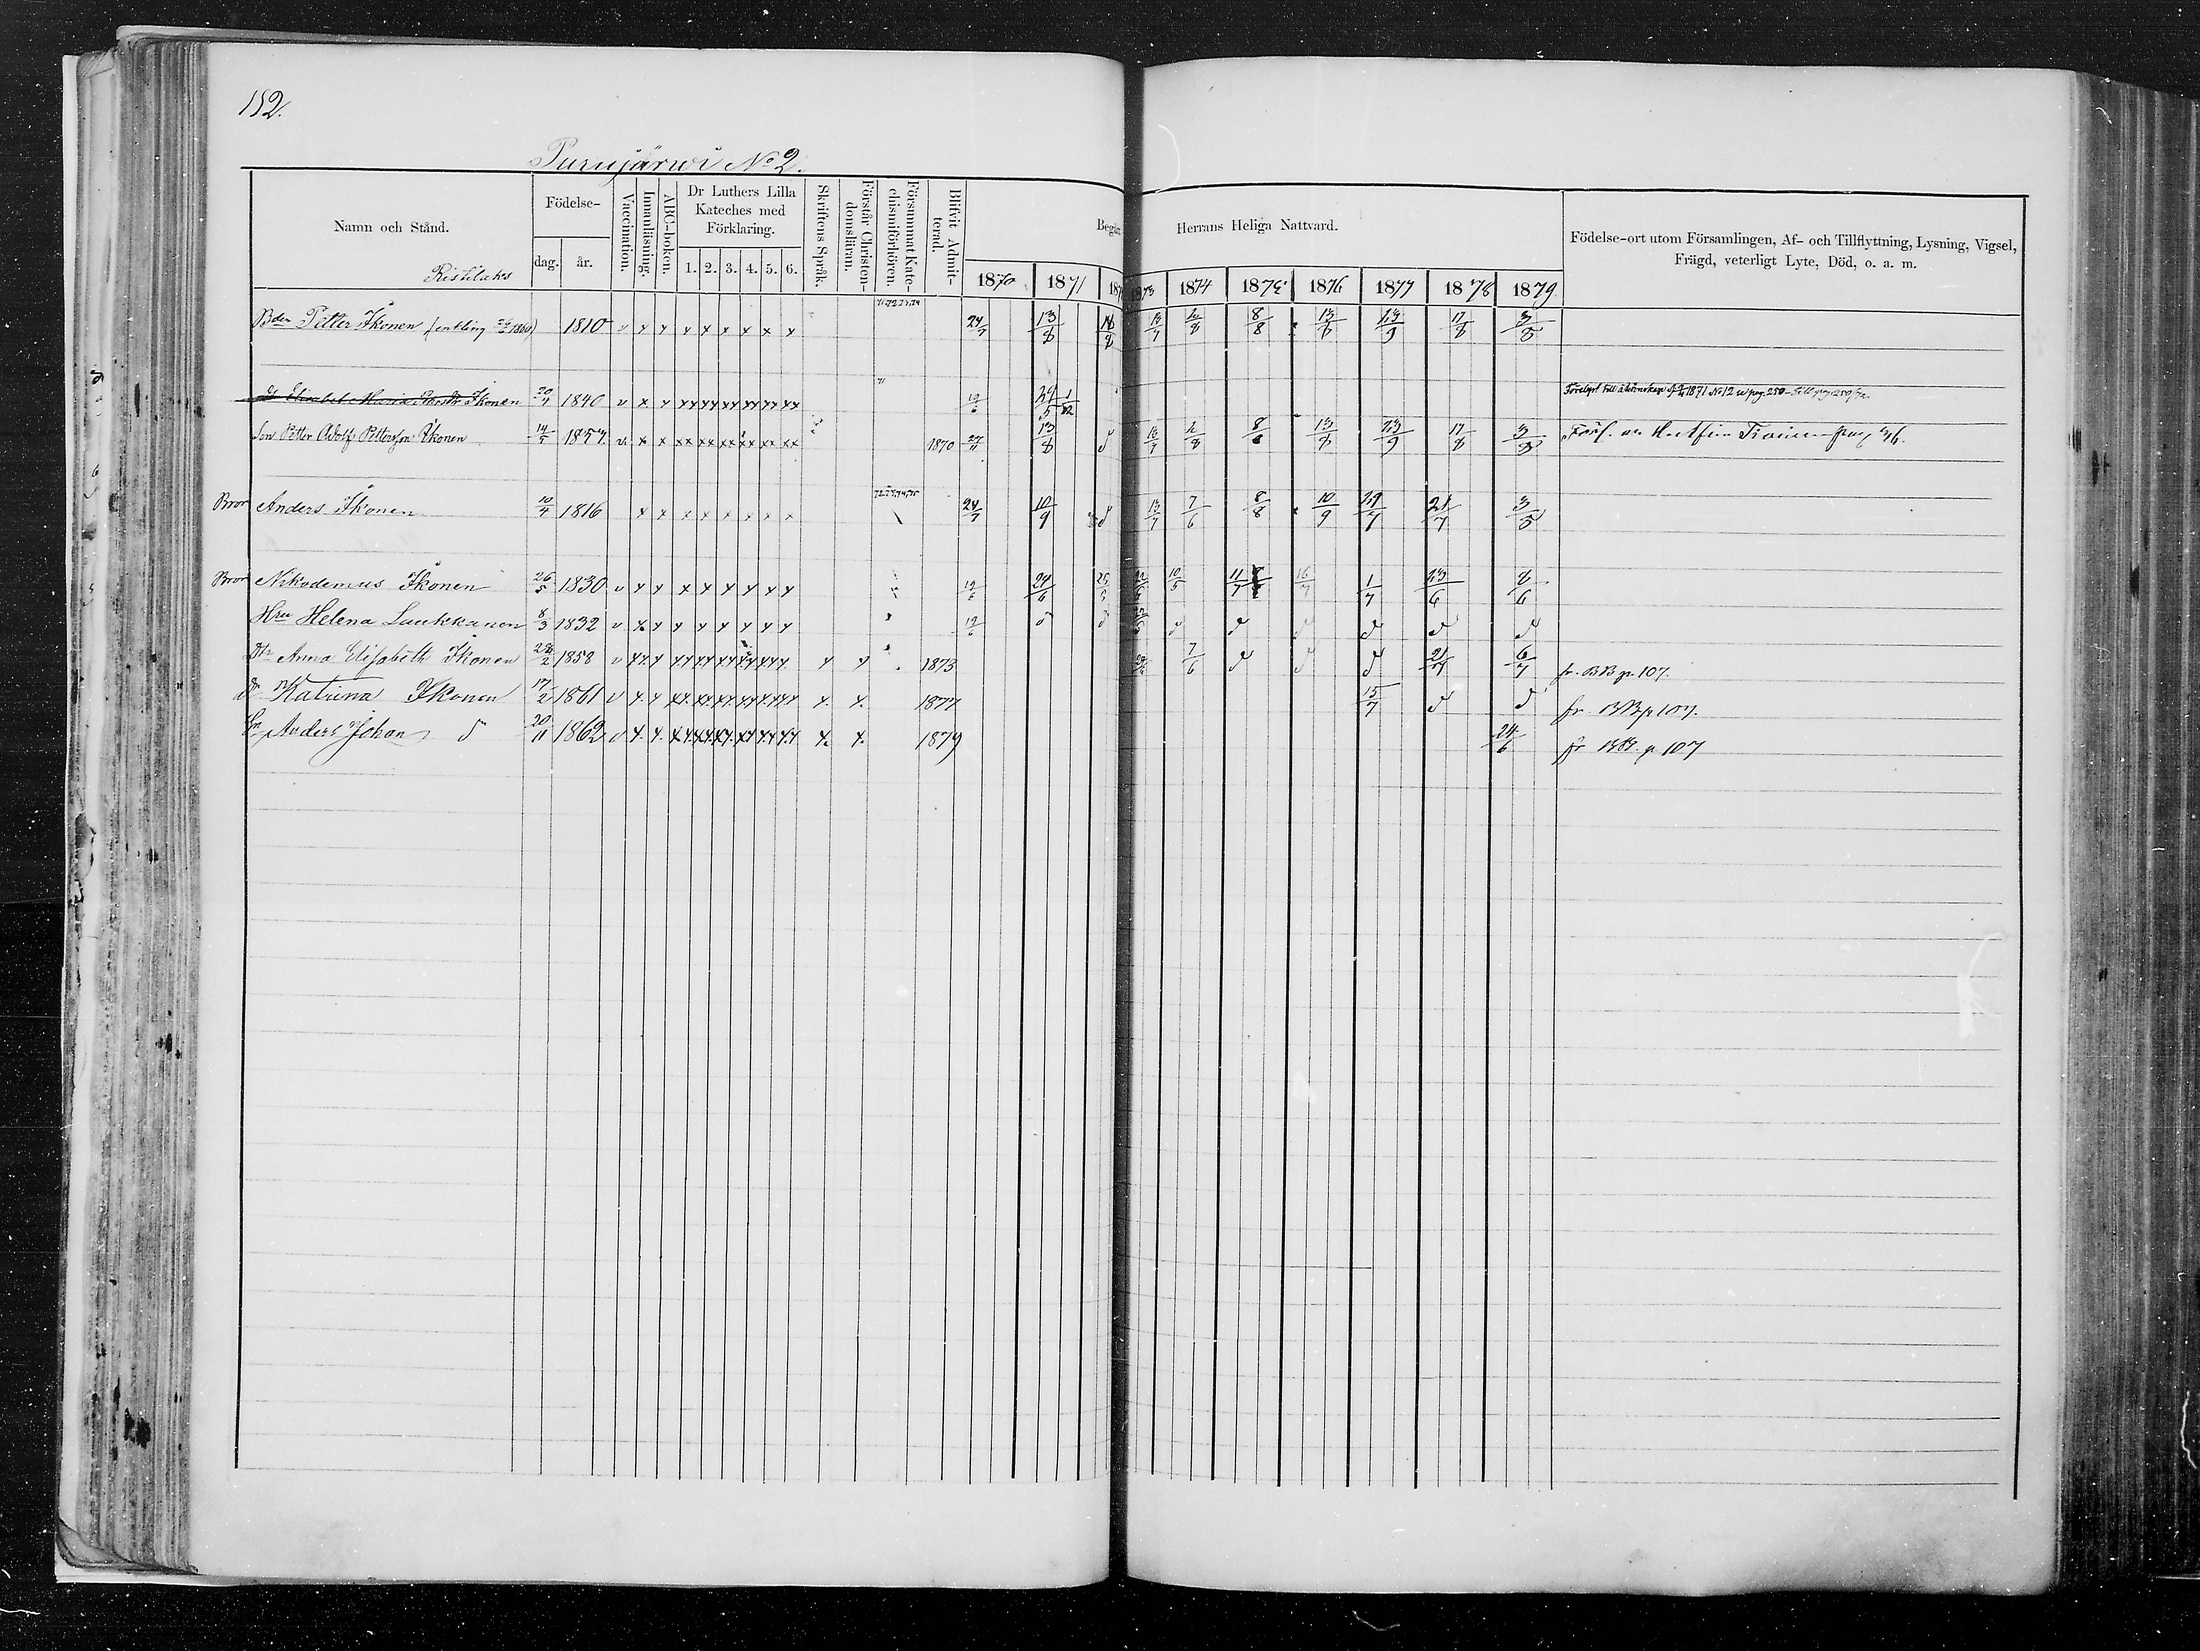 152.
Purujärwi No 2.
Namn och Stånd.
Födelse-
dag. år.
Vaccination.
Innanläsning.
ABC-boken.
Dr Luthers Lilla Kateches med Förklaring.
1. 2. 3. 4. 5. 6.
Skriftens Språk.
Förstår Christendomsläran.
Försummat Katechismiförhören.
Blifvit Admitterad.
Begår Herrans Heliga Nattvard.
1870 1871 187 1873 1874 1875 1876 1877 1878 1879
Födelse-ort utom Församlingen, Af- och Tillflyttning, Lysning, Vigsel,
Frägd, veterligt Lyte, Död, o. a. m.
Ristilaks
Bden Petter Ikonen (enkling 1860) 1810 v x x x x x x x x 24/7 13/8 18/8 13/7 2/8 8/8 13/8 23/9 17/8 3/8
Elisabet Maria Ikonen 20/4 1840 v x x xx xx xx xx xx xx 19/6 24/5 1871 No 12
Son Petter Adolf Petterson Ikonen 14/5 1857 v x x xx xx xx xx xx xx 1870 27/11 13/8 d 13/7 2/8 8/8 13/8 23/9 17/8 3/8
Bror Anders Ikonen 10/7 1816 x x x x x x x x 24/7 10/9 d 13/7 7/6 8/8 10/9 29/7 21/7 3/8
Bror Nikodemus Ikonen 26/5 1830 v x x x x x x x x 19/6 24/6 10/5 11/7 16/7 1/7 23/6 8/6
Hru Helena Laukkanen 8/3 1832 v x x x x x x x x 19/6 d d d d d d d d
Dtr Anna Elisabeth Ikonen 28/2 1858 v xx x xx xx xx xx xx xx x x 1873 7/6 d d d 21/7 6/7 fr. BB p. 107.
Dr Katrina Ikonen 17/2 1861 v x x xx xx xx xx xx xx x x 1877 15/7 d d fr. BB p 107.
Sn Anders Johan d 20/11 1862 v x x xx xx xx xx xx xx x x 1879 24/6 fr BB. p. 107